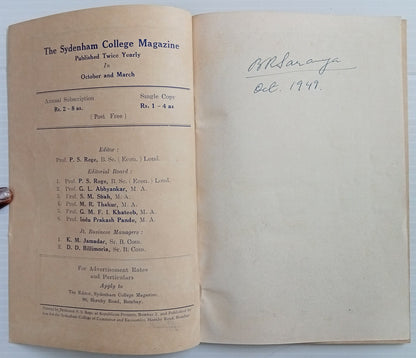 The Sydenham College Magazine
Published Twice Yearly
In
October and March
Annual Subscription
Rs. 2 - 8 as.
Single Copy
Rs. 1 - 4 as
[ Post Free ]
Editor :
Prof. P. S. Rege, B. Sc. ( Econ. ) Lond.
Editorial Board :
1. Prof. P. S. Rege, B. Sc. ( Econ. ) Lond.
2. Prof. G. L. Abhyankar, M. A.
3. Prof. S. M. Shah, M. A.
4. Prof. M. R. Thakur, M. A.
5. Prof. G. M. F. I. Khateeb, M. A.
6. Prof. Indu Prakash Pande, M. A.
Jt. Business Managers :
1. K. M. Jamadar, Sr. B. Com.
2. D. D. Billimoria, Sr. B. Com.
For Advertisement Rates
and Particulars
Apply to
The Editor, Sydenham College Magazine,
90, Hornby Road, Bombay.
Printed by Professor P. S. Rege at
for the Sydenham College of Commerce and Economics, Hornby Road, Bombay
Oct. 1949.